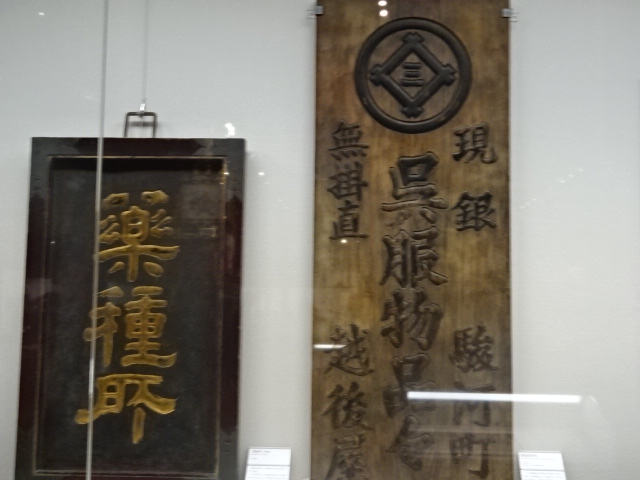 三
現銀 駿河町
呉服物品々
無掛直 越後屋
藥種所